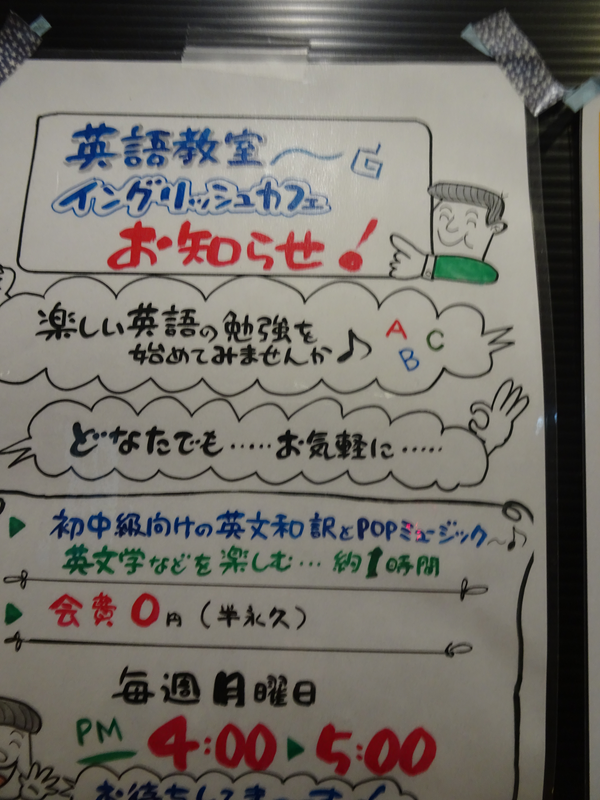 英語教室〜
イングリッシュカフェ
お知らせ!
楽しい英語の勉強を
始めてみませんか♪
A B C
どなたでも……お気軽に……
▶ 初中級向けの英文和訳とPOPミュージック〜♪
英文学などを楽しむ… 約1時間
▶ 会費0円(半永久)
毎週月曜日
PM 4:00▶5:00
お待ちしてま